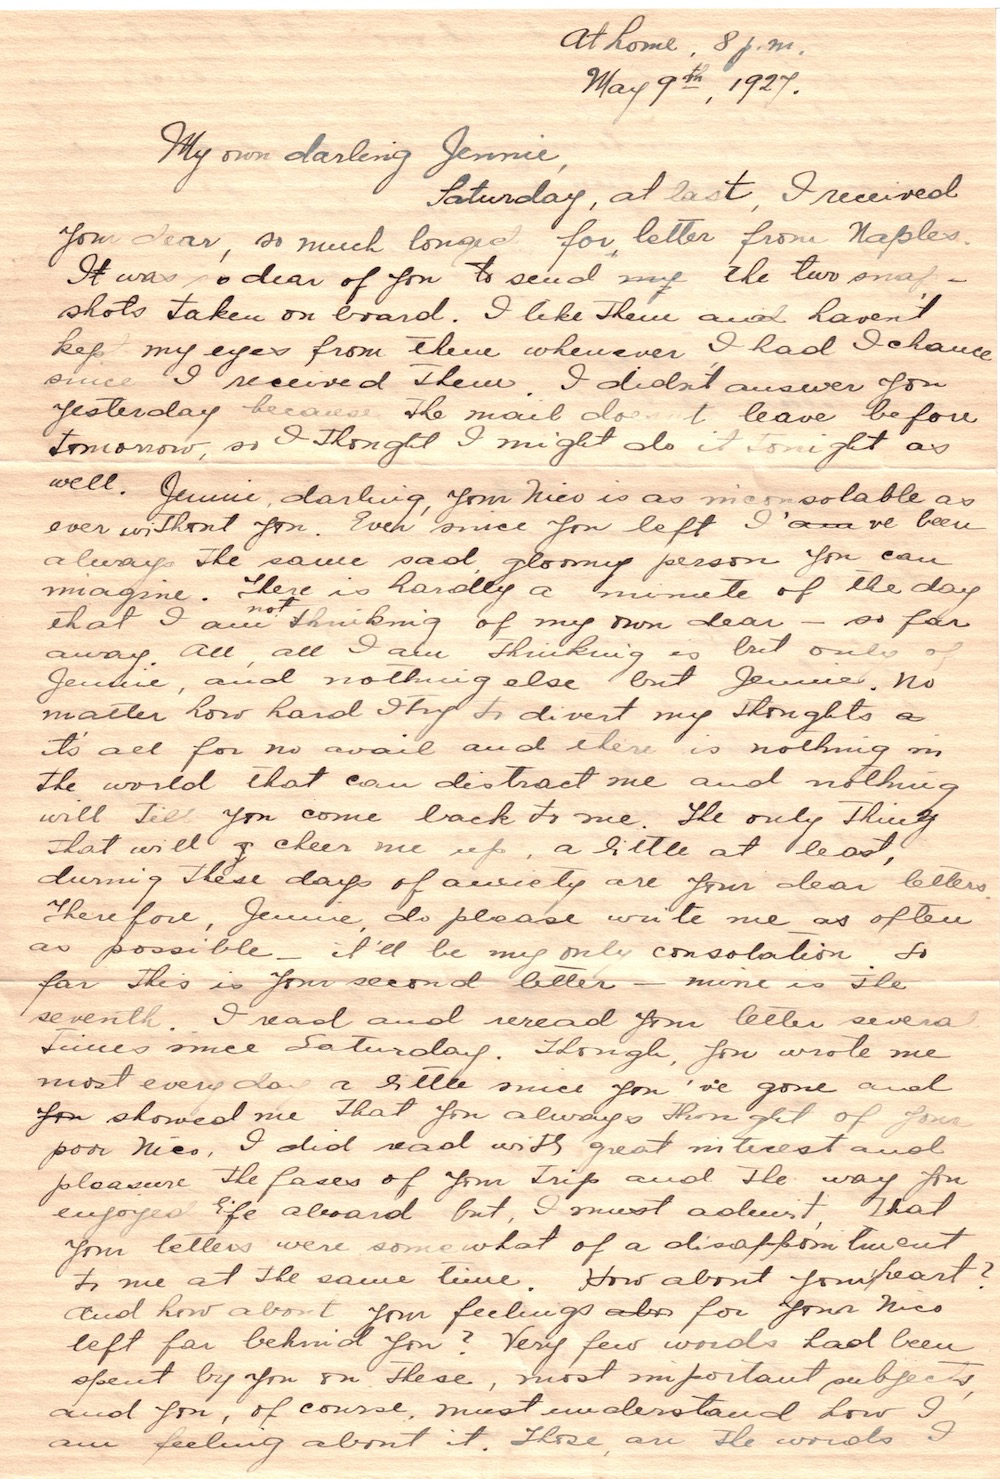 At home, 8 p.m.
May 9th, 1927.
My own darling Jennie,
Saturday, at last, I received
your dear, so much longed for, letter from Naples.
It was so dear of you to send my the two snap-
shots taken on board. I like them and haven't
kept my eyes from them whenever I had I chance
since I received them. I didn't answer you
yesterday because the mail doesn't leave before
tomorrow, so I thought I might do it tonight as
well. Jennie, darling, your Nico is as inconsolable as
ever without you. Ever since you left I'am've been
always the same sad, gloomy person you can
imagine. There is hardly a minute of the day
that I am not thinking of my own dear — so far
away. All, all I am thinking is but only of
Jennie, and nothing else but Jennie. No
matter how hard I try to divert my thoughts a
it's all for no avail and there is nothing in
the world that can distract me and nothing
will till you come back to me. The only thing
that will cheer me up, a little at least,
during these days of anxiety are your dear letters.
Therefore, Jennie, do please write me as often
as possible — it'll be my only consolation. So
far this is your second letter — mine is the
seventh. I read and reread your letter several
times since Saturday. Though, you wrote me
most every day a little since you've gone and
you showed me that you always thought of your
poor Nico, I did read with great interest and
pleasure the fases of your trip and the way you
enjoyed life aboard but, I must admit, that
your letters were somewhat of a disappointment
to me at the same time. How about your heart?
And how about your feelings for your Nico
left far behind you? Very few words had been
spent by you on these, most important subjects,
and you, of course, must understand how I
am feeling about it. Those, are the words I